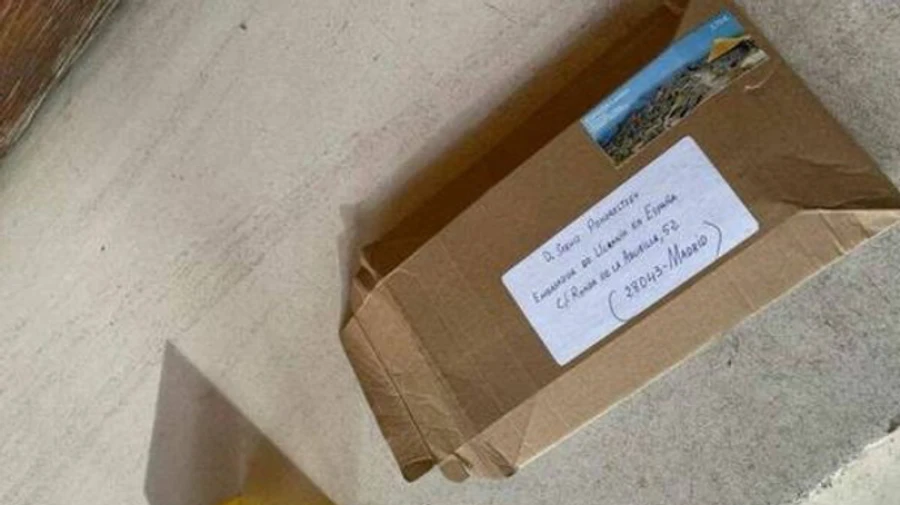 D. Serhii Pohoreltsev
Embajador de Ucrania en España
C/ Ronda de la Abubilla, 52
(28043-Madrid)